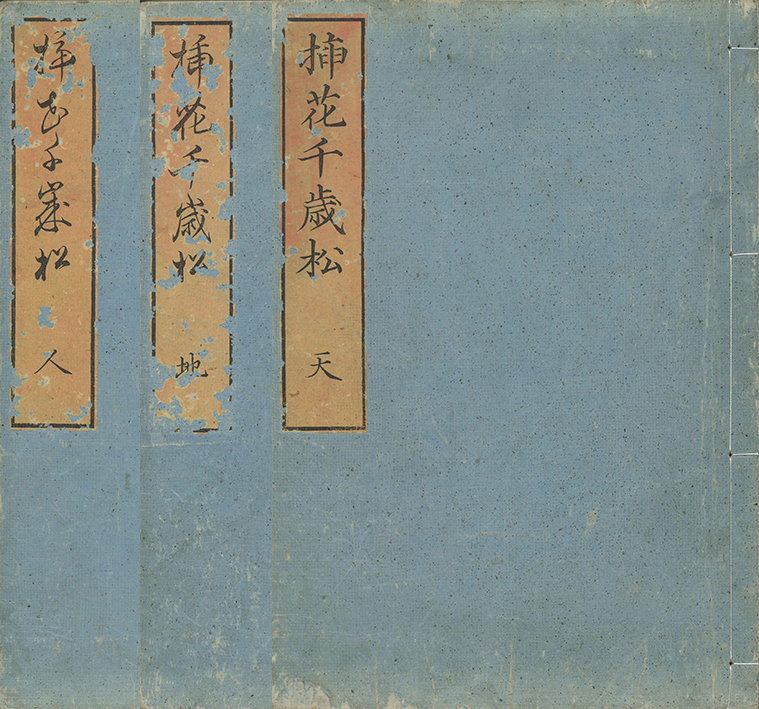 挿花千歳松 天
挿花千歳松 地
挿花千歳松 人